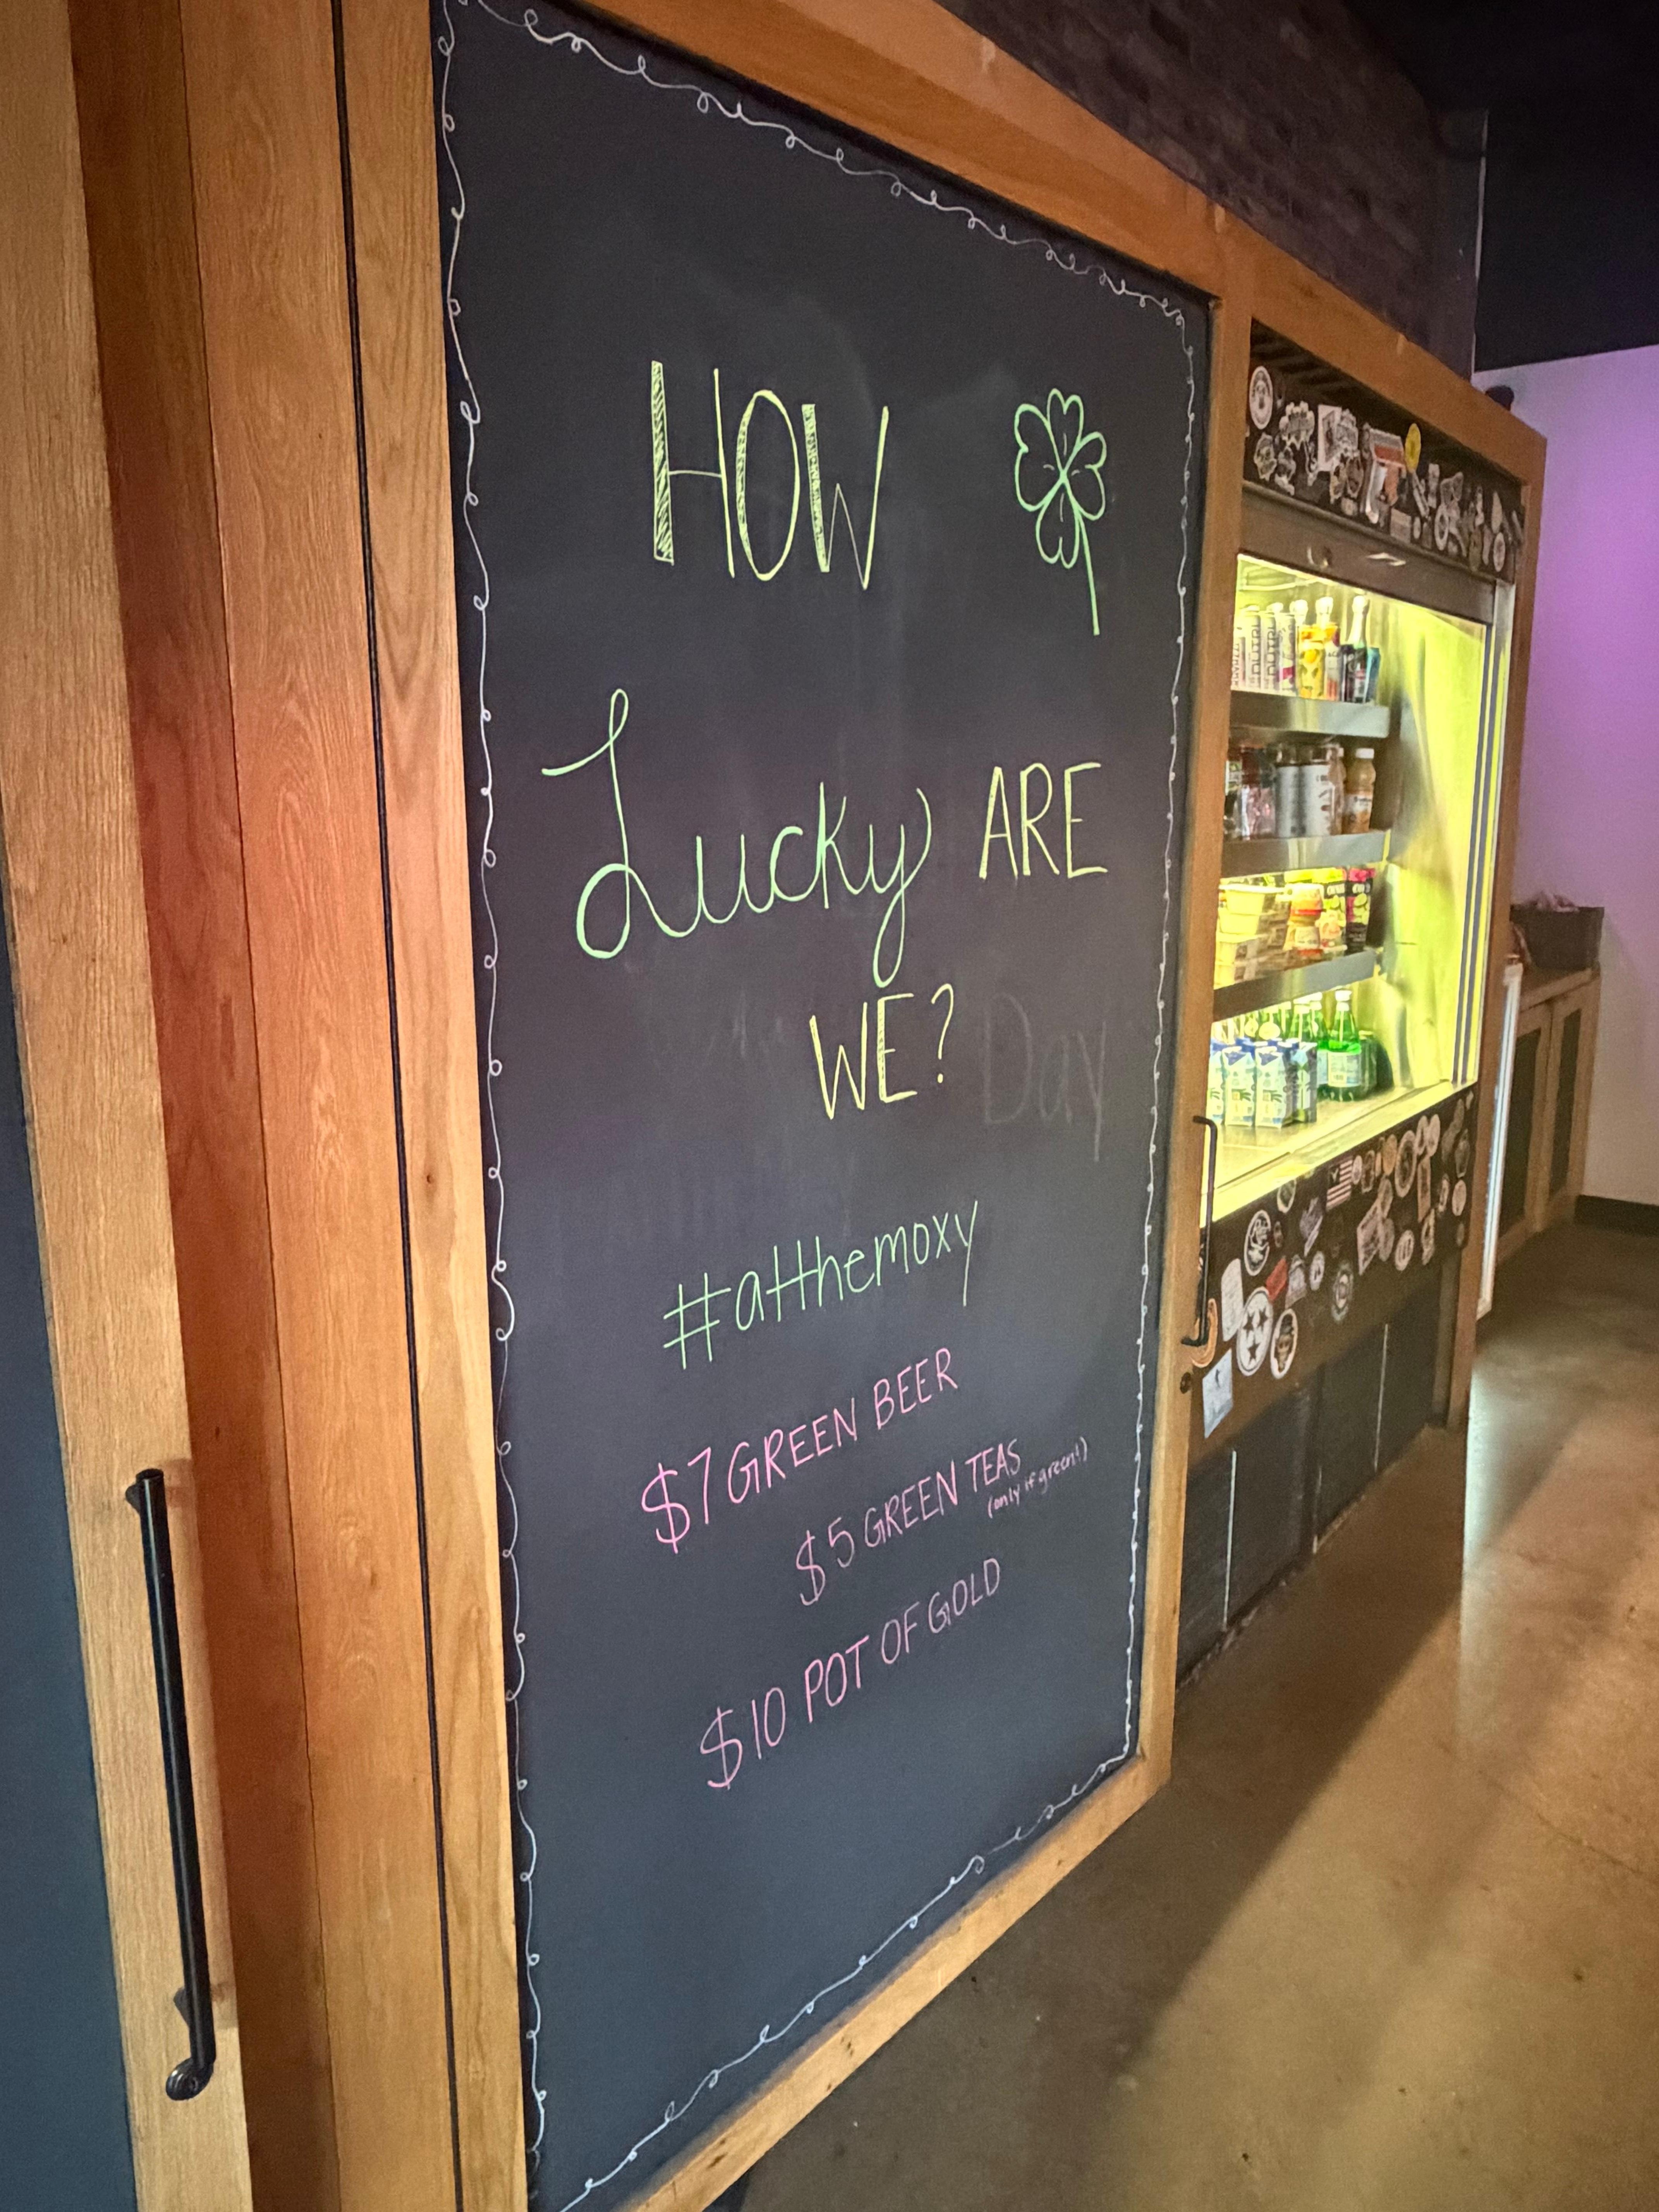 HOW
Lucky ARE
WE?
Day
#atthemoxy
$7 GREEN BEER
$5 GREEN TEAS
(only if green!)
$10 POT OF GOLD
NUTRL